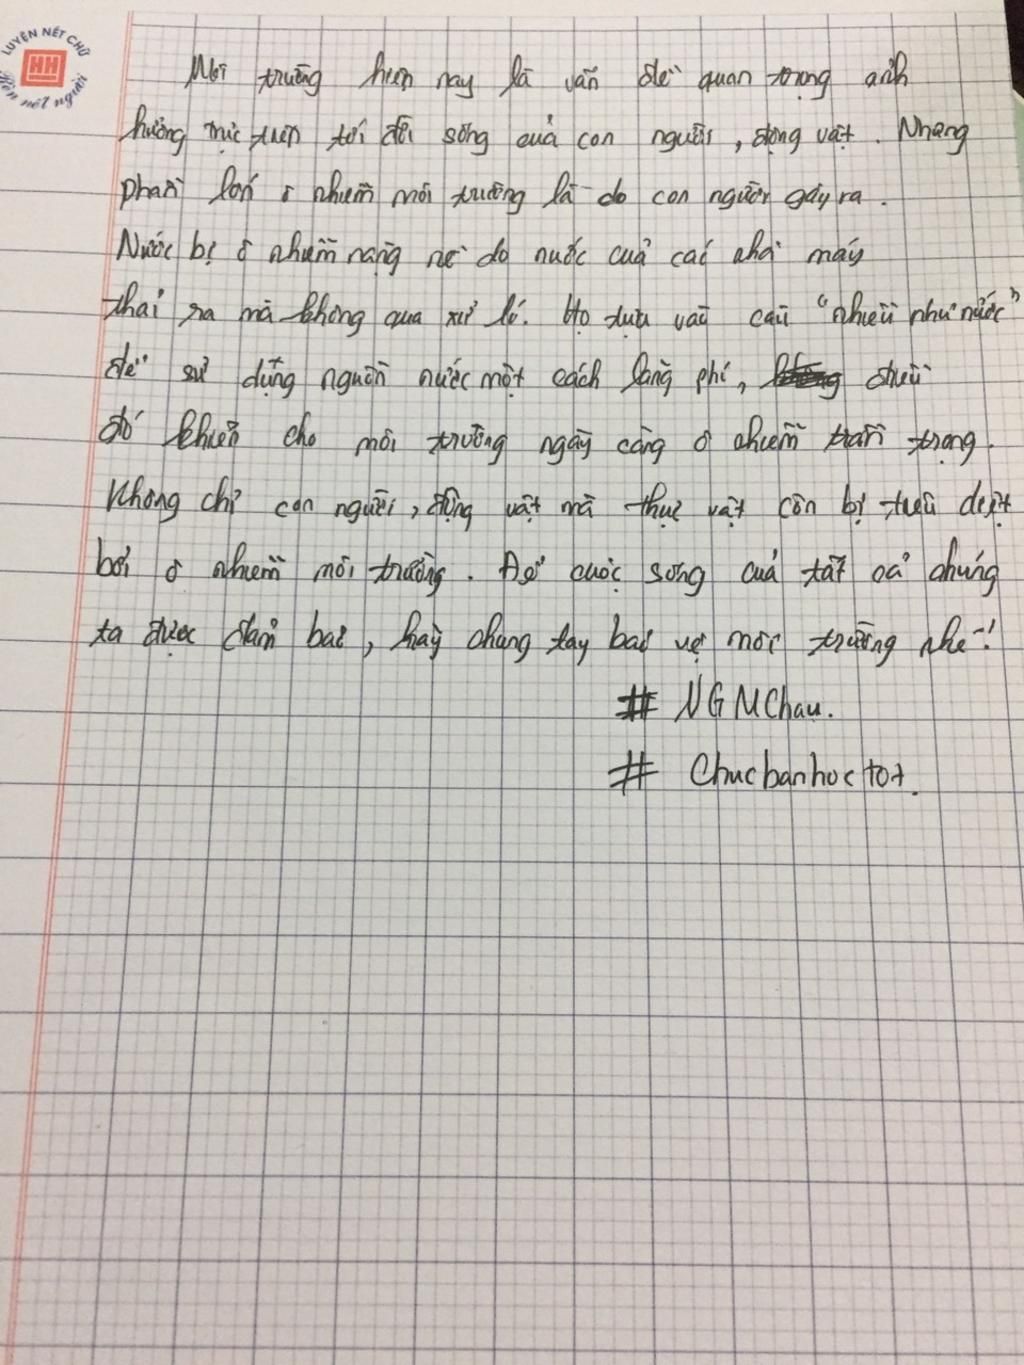 LUYỆN NÉT CHỮ
HH
Rèn nết người
Môi trường hiện nay là vấn đề quan trọng ảnh
hưởng trực tiếp tới đời sống của con người, động vật. Nhưng
phần lớn ô nhiễm môi trường là do con người gây ra.
Nước bị ô nhiễm nặng nề do nước của các nhà máy
thải ra mà không qua xử lí. Họ dựa vào câu "nhiều như nước"
để sử dụng nguồn nước một cách lãng phí, điều
đó khiến cho môi trường ngày càng ô nhiễm trầm trọng.
Không chỉ con người, động vật mà thực vật còn bị tiêu diệt
bởi ô nhiễm môi trường. Để cuộc sống của tất cả chúng
ta được đảm bảo, hãy chung tay bảo vệ môi trường nhé!
# NGMChau.
# Chucbanhoctot.